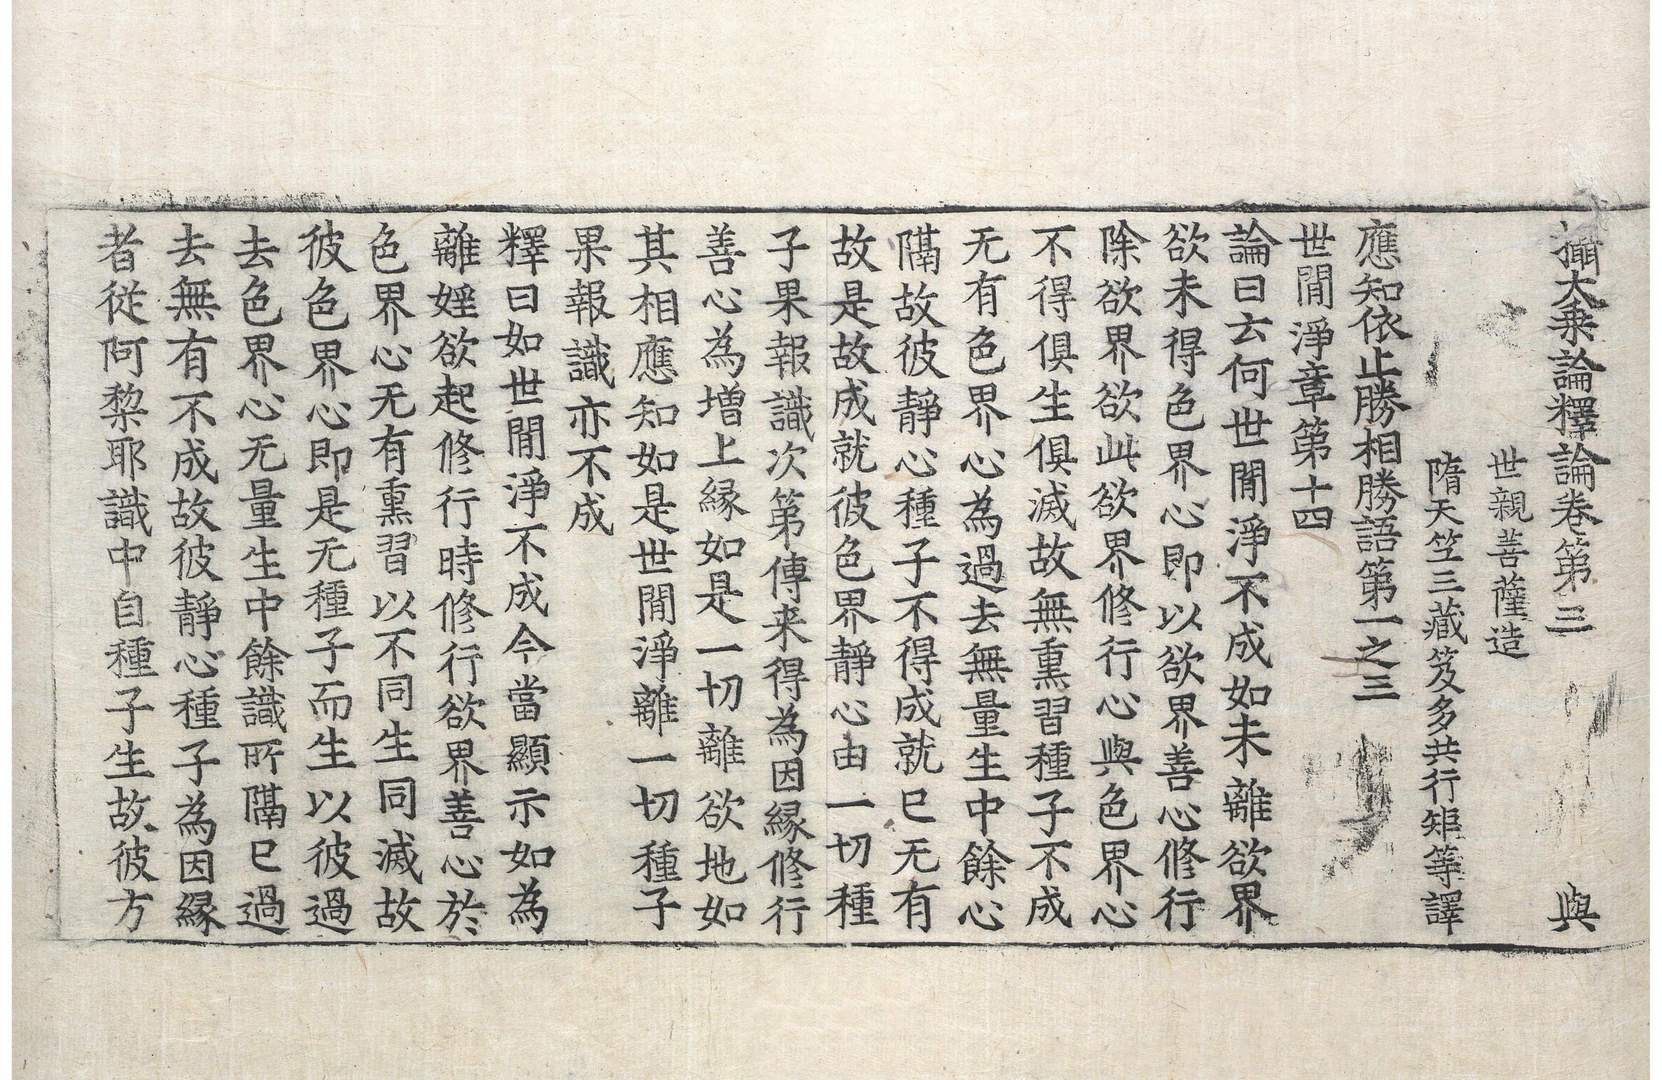 攝大乗論釋論卷第三 與
世親菩薩造
隋天竺三藏笈多共行矩等譯
應知依止勝相勝語第一之三
世閒淨章第十四
論曰云何世閒淨不成如未離欲界
欲未得色界心即以欲界善心修行
除欲界欲此欲界修行心與色界心
不得俱生俱滅故無熏習種子不成
无有色界心為過去無量生中餘心
隔故彼靜心種子不得成就已无有
故是故成就彼色界靜心由一切種
子果報識次第傳来得為因緣修行
善心為增上緣如是一切離欲地如
其相應知如是世閒淨離一切種子
果報識亦不成
釋曰如世閒淨不成今當顯示如為
離婬欲起修行時修行欲界善心於
色界心无有熏習以不同生同滅故
彼色界心即是无種子而生以彼過
去色界心无量生中餘識所隔已過
去無有不成故彼靜心種子為因緣
者從阿黎耶識中自種子生故彼方